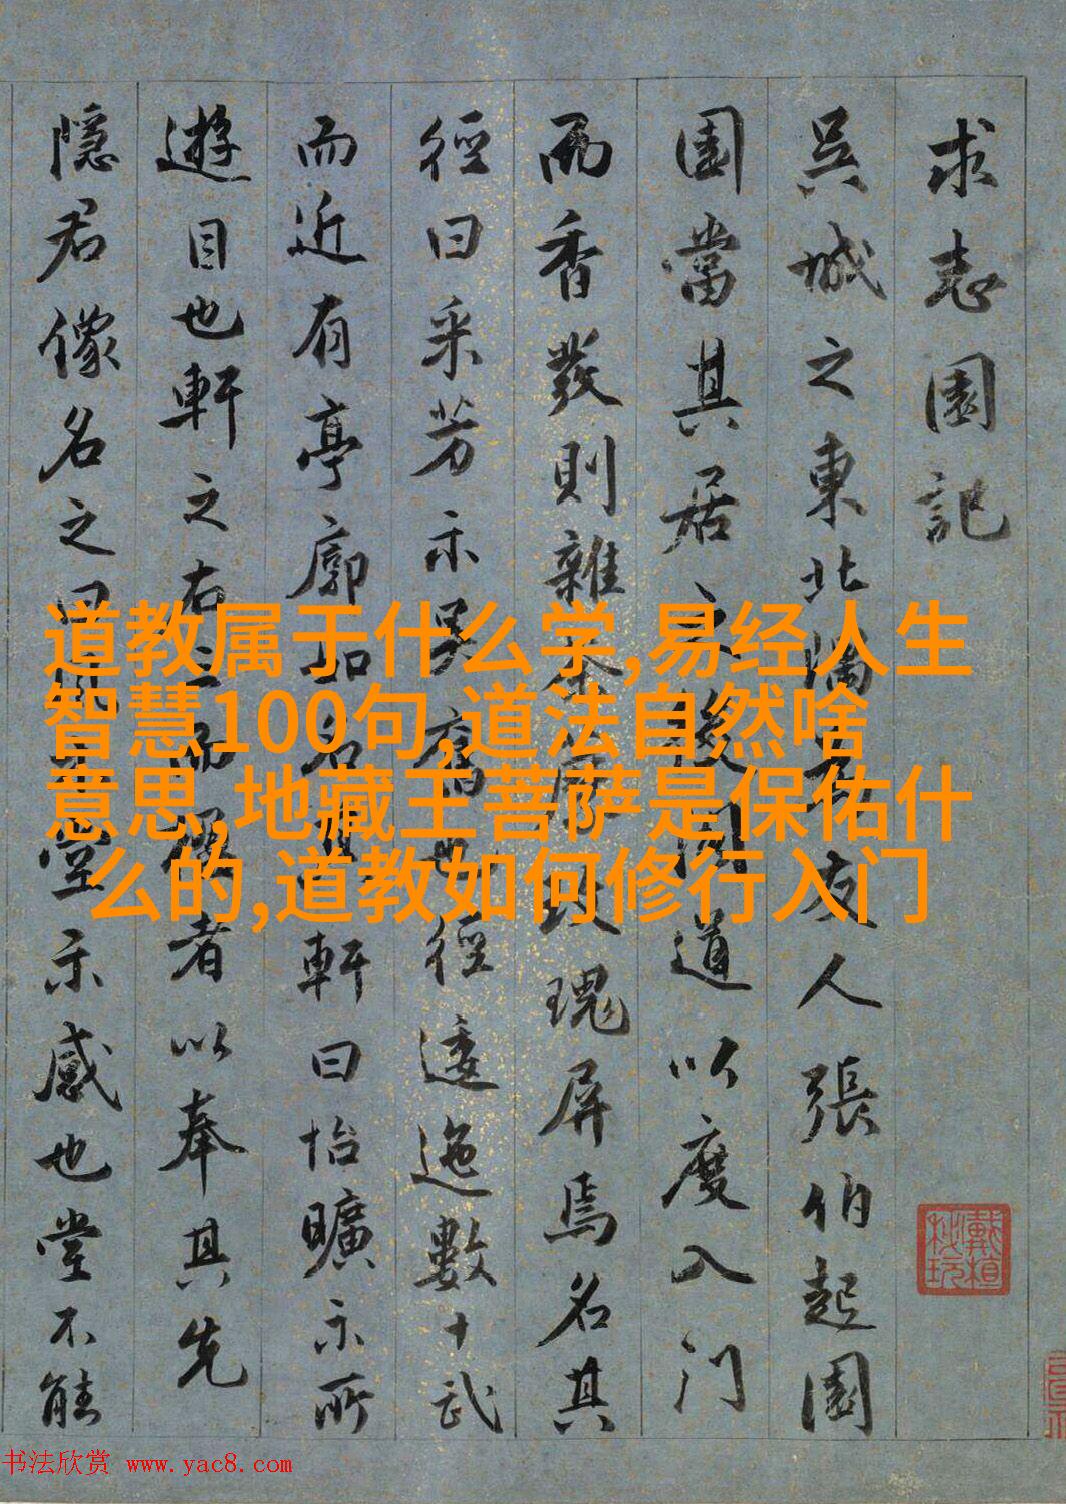 求志園記
吳城之東北隅
友人張伯起園
園當其居之後
道以度入門
而香發則雜
玫瑰屏焉名其
徑曰采芳示吳
徑逶迤數十武
而近有亭廓
軒曰怡曠示所
遊目也軒之右
者以奉其先
隱君像名之曰
堂示感也堂不能
道教属于什么学,易经人生
智慧100句,道法自然啥
意思,地藏王菩萨是保佑什
么的,道教如何修行入门
书法欣赏 www.yac8.com